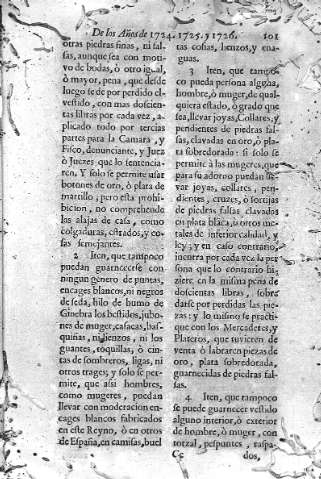 De los Años de 1724. 1725. y 1726. 101
otras piedras finas, ni fal-
sas, aunque sea con moti-
vo de bodas, ò otro igual,
ò mayor, pena, que desde
luego se dè por perdido el
vestido, con mas doscien-
tas libras por cada vez, a-
plicado todo por tercias
partes para la Camara, y
Fisco, denunciante, y Juez
ò Juezes que lo sentencia-
ren. Y solo se permite usar
botones de oro, ò plata de
martillo, pero esta prohi-
bicion, no comprehende
los alajas de casa, como
colgaduras, estrados, y co-
sas semejantes.
2 Iten, que tampoco
puedan guarnecerse con
ningun genero de puntas,
encages blancos, ni negros
de seda, hilo de humo de
Ginebra los bestidos, jubo-
nes de muger, casacas, bas-
quiñas, ni lienzos, ni los
guantes, toquillas, ò cin-
tas de sombreros, ligas, ni
otros trages; y solo se per-
mite, que assi hombres,
como mugeres, puedan
llevar con moderacion en-
cages blancos fabricados
en este Reyno, ò en otros
de España, en camisas, buel
tas cofias, lienzos, y ena-
guas.
3 Iten, que tampo-
co pueda persona alguna,
hombre, ò muger, de qual-
quiera estado, ò grado que
sea, llevar joyas, Collares, y
pendientes de piedras fal-
sas, clavadas en oro, ò pla-
ta sobredorada: si solo se
permite à las mugeres, que
para su adorno puedan lle-
var joyas, collares, pen-
dientes, cruzes, ò sortijas
de piedras falsas clavados
en plata blãca, ò otros me-
tales de inferior calidad, y
ley; y en caso contrario,
incurra por cada vez la per
sona que lo contrario hi-
ziere en la misma pena de
doscientas libras, sobre
darse por perdidas las pie-
zas: y lo mismo se practi-
que con los Mercaderes, y
Plateros, que tuvieren de
venta ò labraren piezas de
oro, plata sobredorada,
guarnecidas de piedras fal-
sas.
4. Iten, que tampoco
se puede guarnecer vestido
alguno interior, ò exterior
de hombre, ò muger, con
torzal, pespuntes, raspa-
Cc dos,